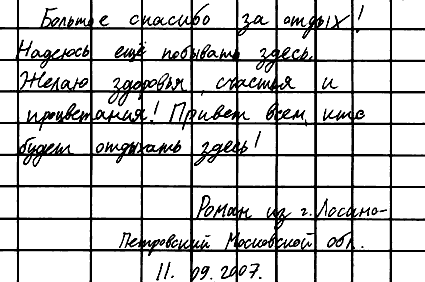 Большое спасибо за отдых!
Надеюсь ещё побывать здесь.
Желаю здоровья, счастья и
процветания! Привет всем, кто
будет отдыхать здесь!
Роман из г. Лосино-
Петровский Московской обл.
11. 09. 2007.